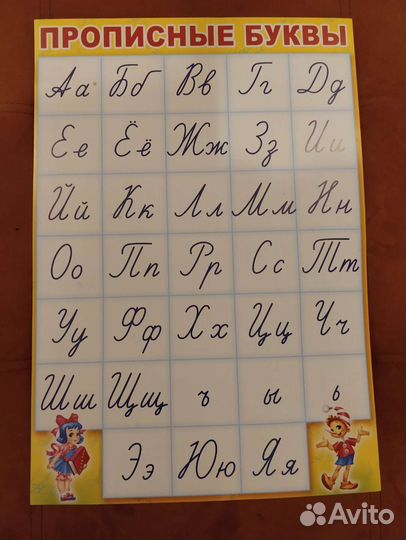 ПРОПИСНЫЕ БУКВЫ
Аа Бб Вв Гг Дд
Ее Ёё Жж Зз Ии
Йй Кк Лл Мм Нн
Оо Пп Рр Сс Тт
Уу Фф Хх Цц Чч
Шш Щщ ъ ы ь
Ээ Юю Яя
Avito